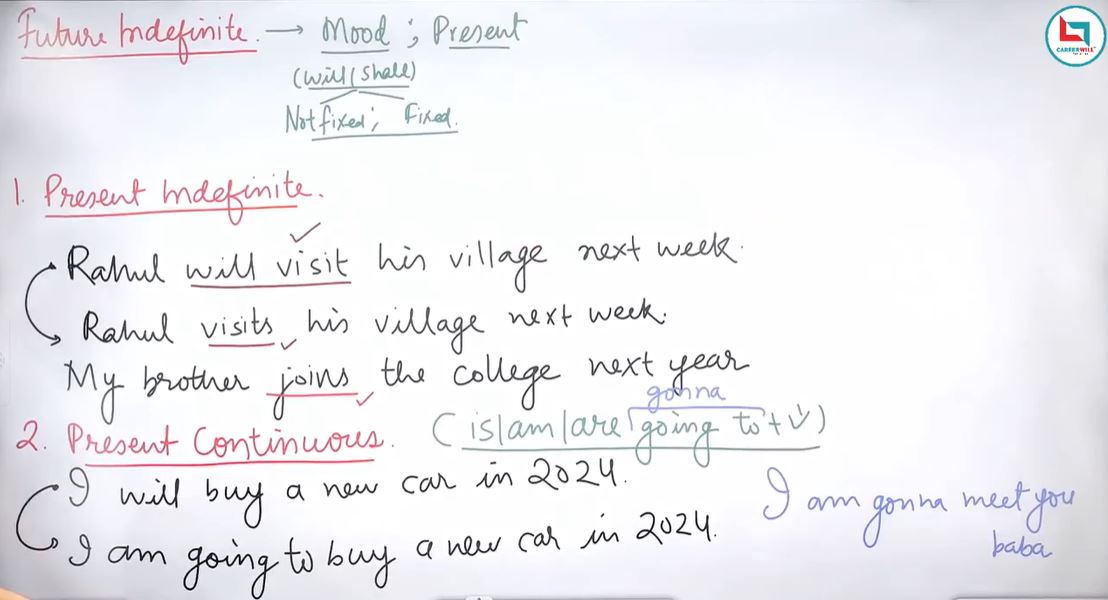 Future Indefinite. → Mood ; Present
(will/shall)
Not fixed; Fixed.
CAREERWILL
1. Present Indefinite.
Rahul will visit his village next week.
Rahul visits his village next week.
My brother joins the college next year
gonna
2. Present Continuous. (is/am/are going to + V)
I will buy a new car in 2024.
I am going to buy a new car in 2024.
I am gonna meet you
baba